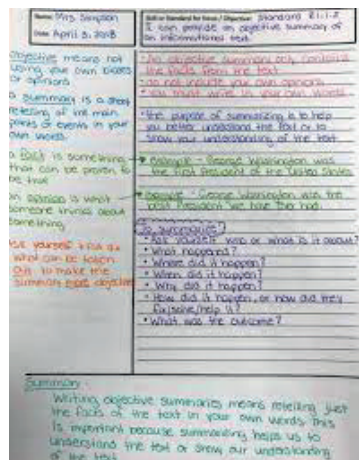 Name: Mrs Simpson
Date: April 3, 2018
Skill or Standard for Focus / Objective: Standard RI.1-2
I can provide an objective summary of
an informational text.
Objective means not
using your own biases
or opinions
a summary is a short
retelling of the main
points or events in your
own words.
a fact is something
that can be proven to
be true
an opinion is what
someone thinks about
something
Ask yourself
what can be taken
out to make the
summary more objective
• An objective summary only contains
the facts from the text
• do not include your own opinions
• you must write in your own words
• the purpose of summarizing is to help
you better understand the text or to
show your understanding of the text
example - George Washington was
the first President of the United States
example - George Washington was the
best President we have ever had.
To summarize:
• Ask yourself who or what is it about?
• What happened?
• Where did it happen?
• When did it happen?
• Why did it happen?
• How did it happen, or how did they
fix/solve/help it?
• What was the outcome?
Summary -
Writing objective summaries means retelling just
the facts of the text in your own words. This
is important because summarizing helps us to
understand the text or show our understanding
of the text